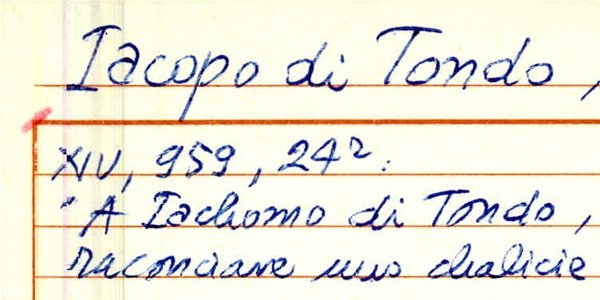 Iacopo di Tondo,
XIV, 959, 24².
"A Iachomo di Tondo,
raconciare uno chalicie